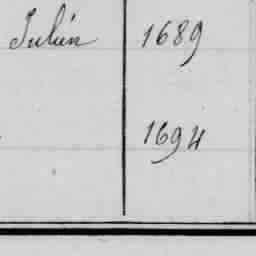 Julián 1689
1694